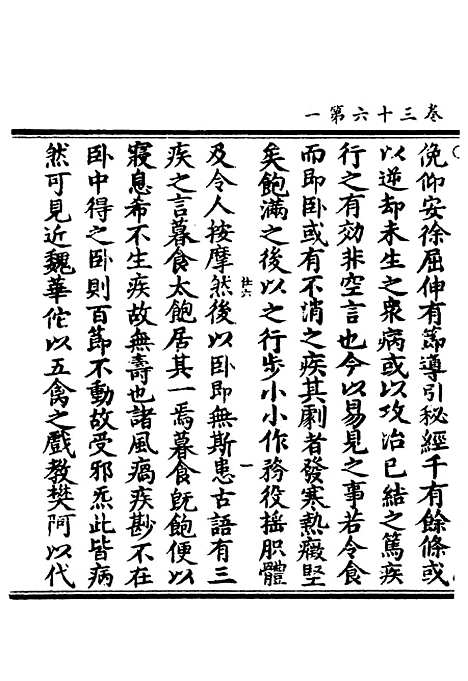 卷三十六第一
俛仰安徐屈伸有節導引秘經千有餘條或
以逆却未生之衆病或以攻治已結之篤疾
行之有効非空言也今以易見之事若令食
而即卧或有不消之疾其劇者發寒熱癥堅
矣飽滿之後以之行步小小作務役摇肌體
及令人按摩然後以卧即無斯患古語有三
疾之言暮食太飽居其一焉暮食既飽便以
寢息希不生疾故無壽也諸風瘑疾尠不在
卧中得之卧則百節不動故受邪炁此皆病
然可見近魏華佗以五禽之戲教樊阿以代